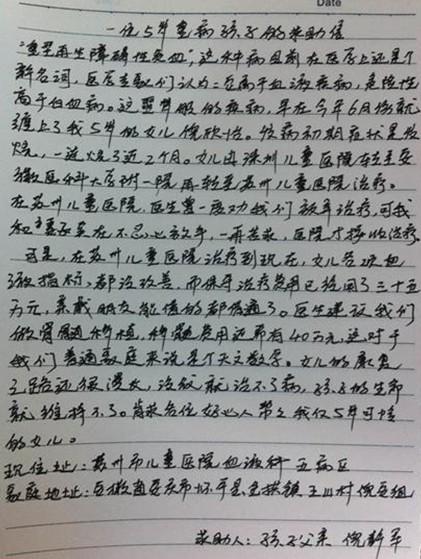 Date
一位5岁重病孩子的求助信
"重型再生障碍性贫血",这种病目前在医学上还是个
新名词,医学专家们认为:它属于血液疾病,危险性
高于白血病。这噩梦般的疾病,早在今年6月份就
缠上了我5岁的女儿倪欣怡。该病初期症状是发
烧,一连烧了近2个月。女儿由深圳儿童医院转至安
徽医科大学附一院再转至苏州儿童医院治疗。
在苏州儿童医院,医生曾一度劝我们放弃治疗,可我
和妻子实在不忍心放手,一再苦求,医院才接收治疗。
可是,在苏州儿童医院治疗到现在,女儿各项血
液指标,都没改善,而保守治疗费用已经用了三十五
万元,亲戚朋友能借的都借遍了。医生建议我们
做骨髓移植,移植费用还需有40万元,这对于
我们普通家庭来说是个天文数字。女儿的康复
之路还很漫长,没钱就治不了病,孩子的生命
就维持不了。肯求各位好心人帮帮我仅5岁可怜
的女儿。
现住地址:苏州市儿童医院血液科五病区
家庭地址:安徽省安庆市怀宁县金拱镇王山村倪庄组
求助人:孩子父亲 倪静军